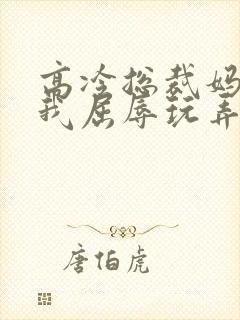 高冷总裁妈
我屈辱玩弄
唐伯虎